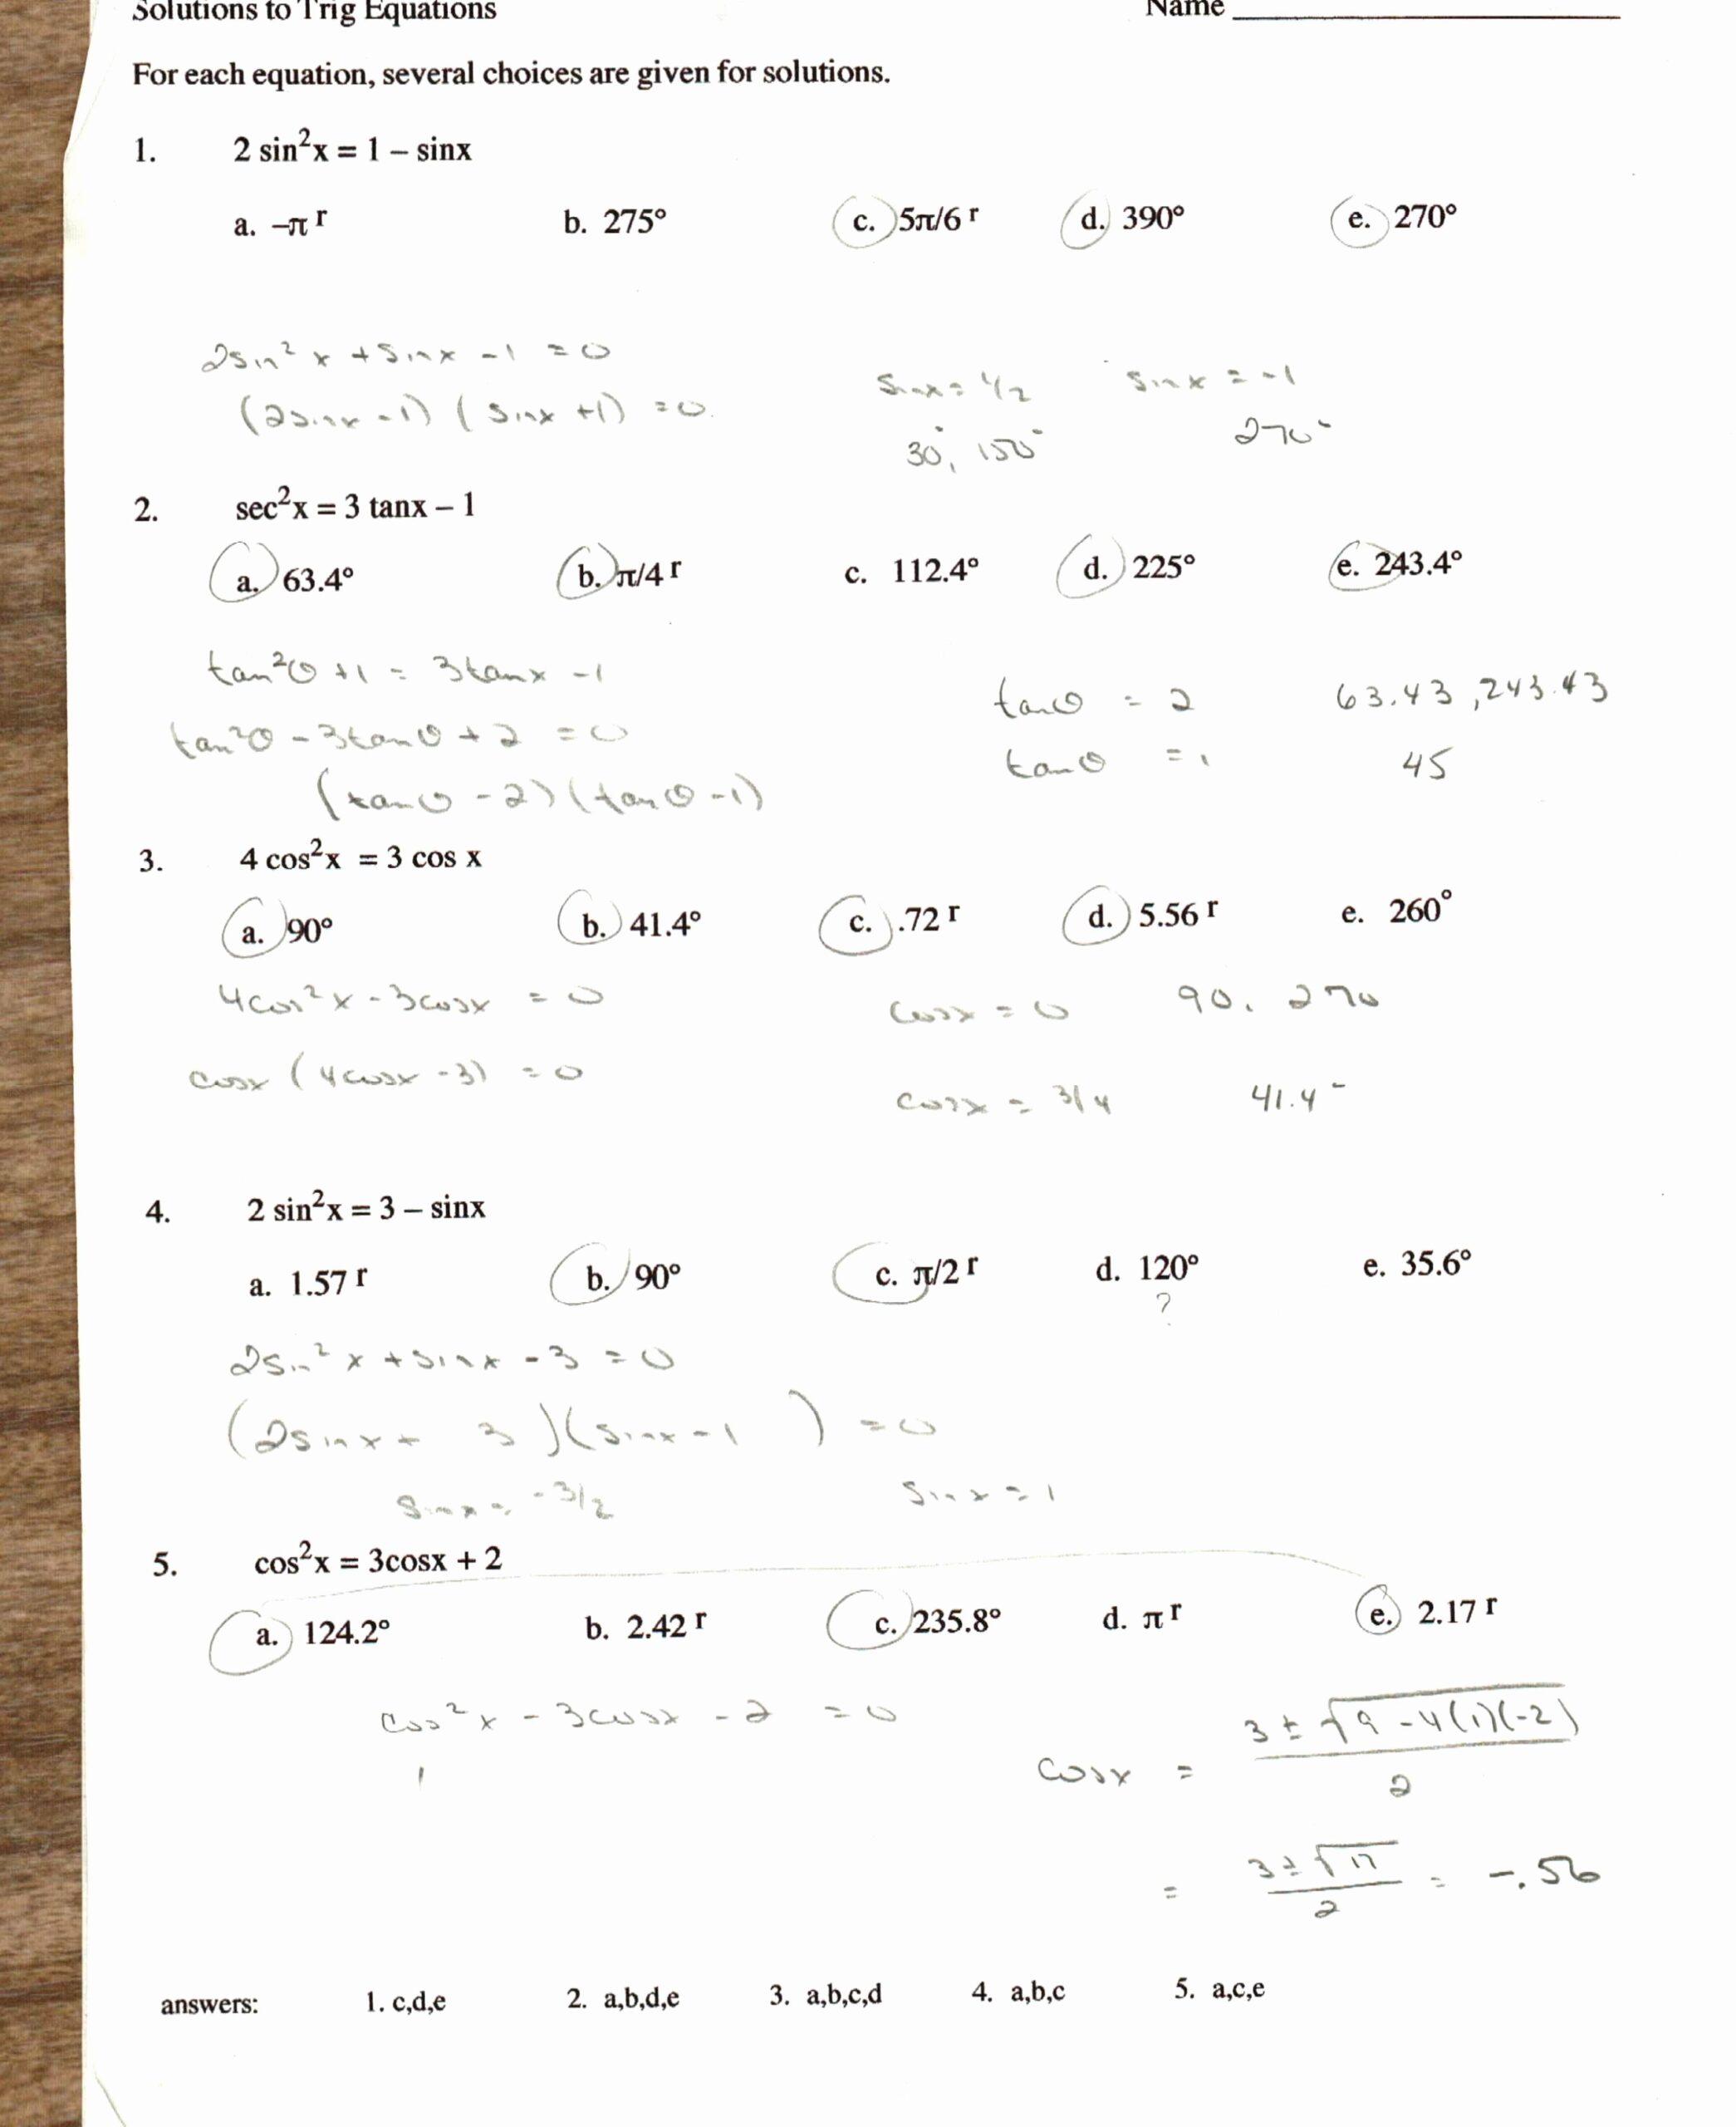 Solutions to Trig Equations Name
For each equation, several choices are given for solutions.
1. 2 sin²x = 1 – sinx
a. –π r b. 275° c. 5π/6 r d. 390° e. 270°
2sin²x + sinx - 1 = 0
(2sinx - 1) (sinx + 1) = 0
sinx = 1/2 sinx = -1
30°, 150° 270°
2. sec²x = 3 tanx – 1
a. 63.4° b. π/4 r c. 112.4° d. 225° e. 243.4°
tan²θ + 1 = 3tanx - 1
tan²θ - 3tanθ + 2 = 0
(tanθ - 2)(tanθ - 1)
tanθ = 2 63.43, 243.43
tanθ = 1 45
3. 4 cos²x = 3 cos x
a. 90° b. 41.4° c. .72 r d. 5.56 r e. 260°
4cos²x - 3cosx = 0
cosx (4cosx - 3) = 0
cosx = 0 90, 270
cosx = 3/4 41.4°
4. 2 sin²x = 3 – sinx
a. 1.57 r b. 90° c. π/2 r d. 120° e. 35.6°
?
2sin²x + sinx - 3 = 0
(2sinx + 3)(sinx - 1) = 0
sinx = -3/2 sinx = 1
5. cos²x = 3cosx + 2
a. 124.2° b. 2.42 r c. 235.8° d. π r e. 2.17 r
cos²x - 3cosx - 2 = 0
cosx = 3 ± √9 - 4(1)(-2) / 2
= 3 ± √17 / 2 = -.56
answers: 1. c,d,e 2. a,b,d,e 3. a,b,c,d 4. a,b,c 5. a,c,e